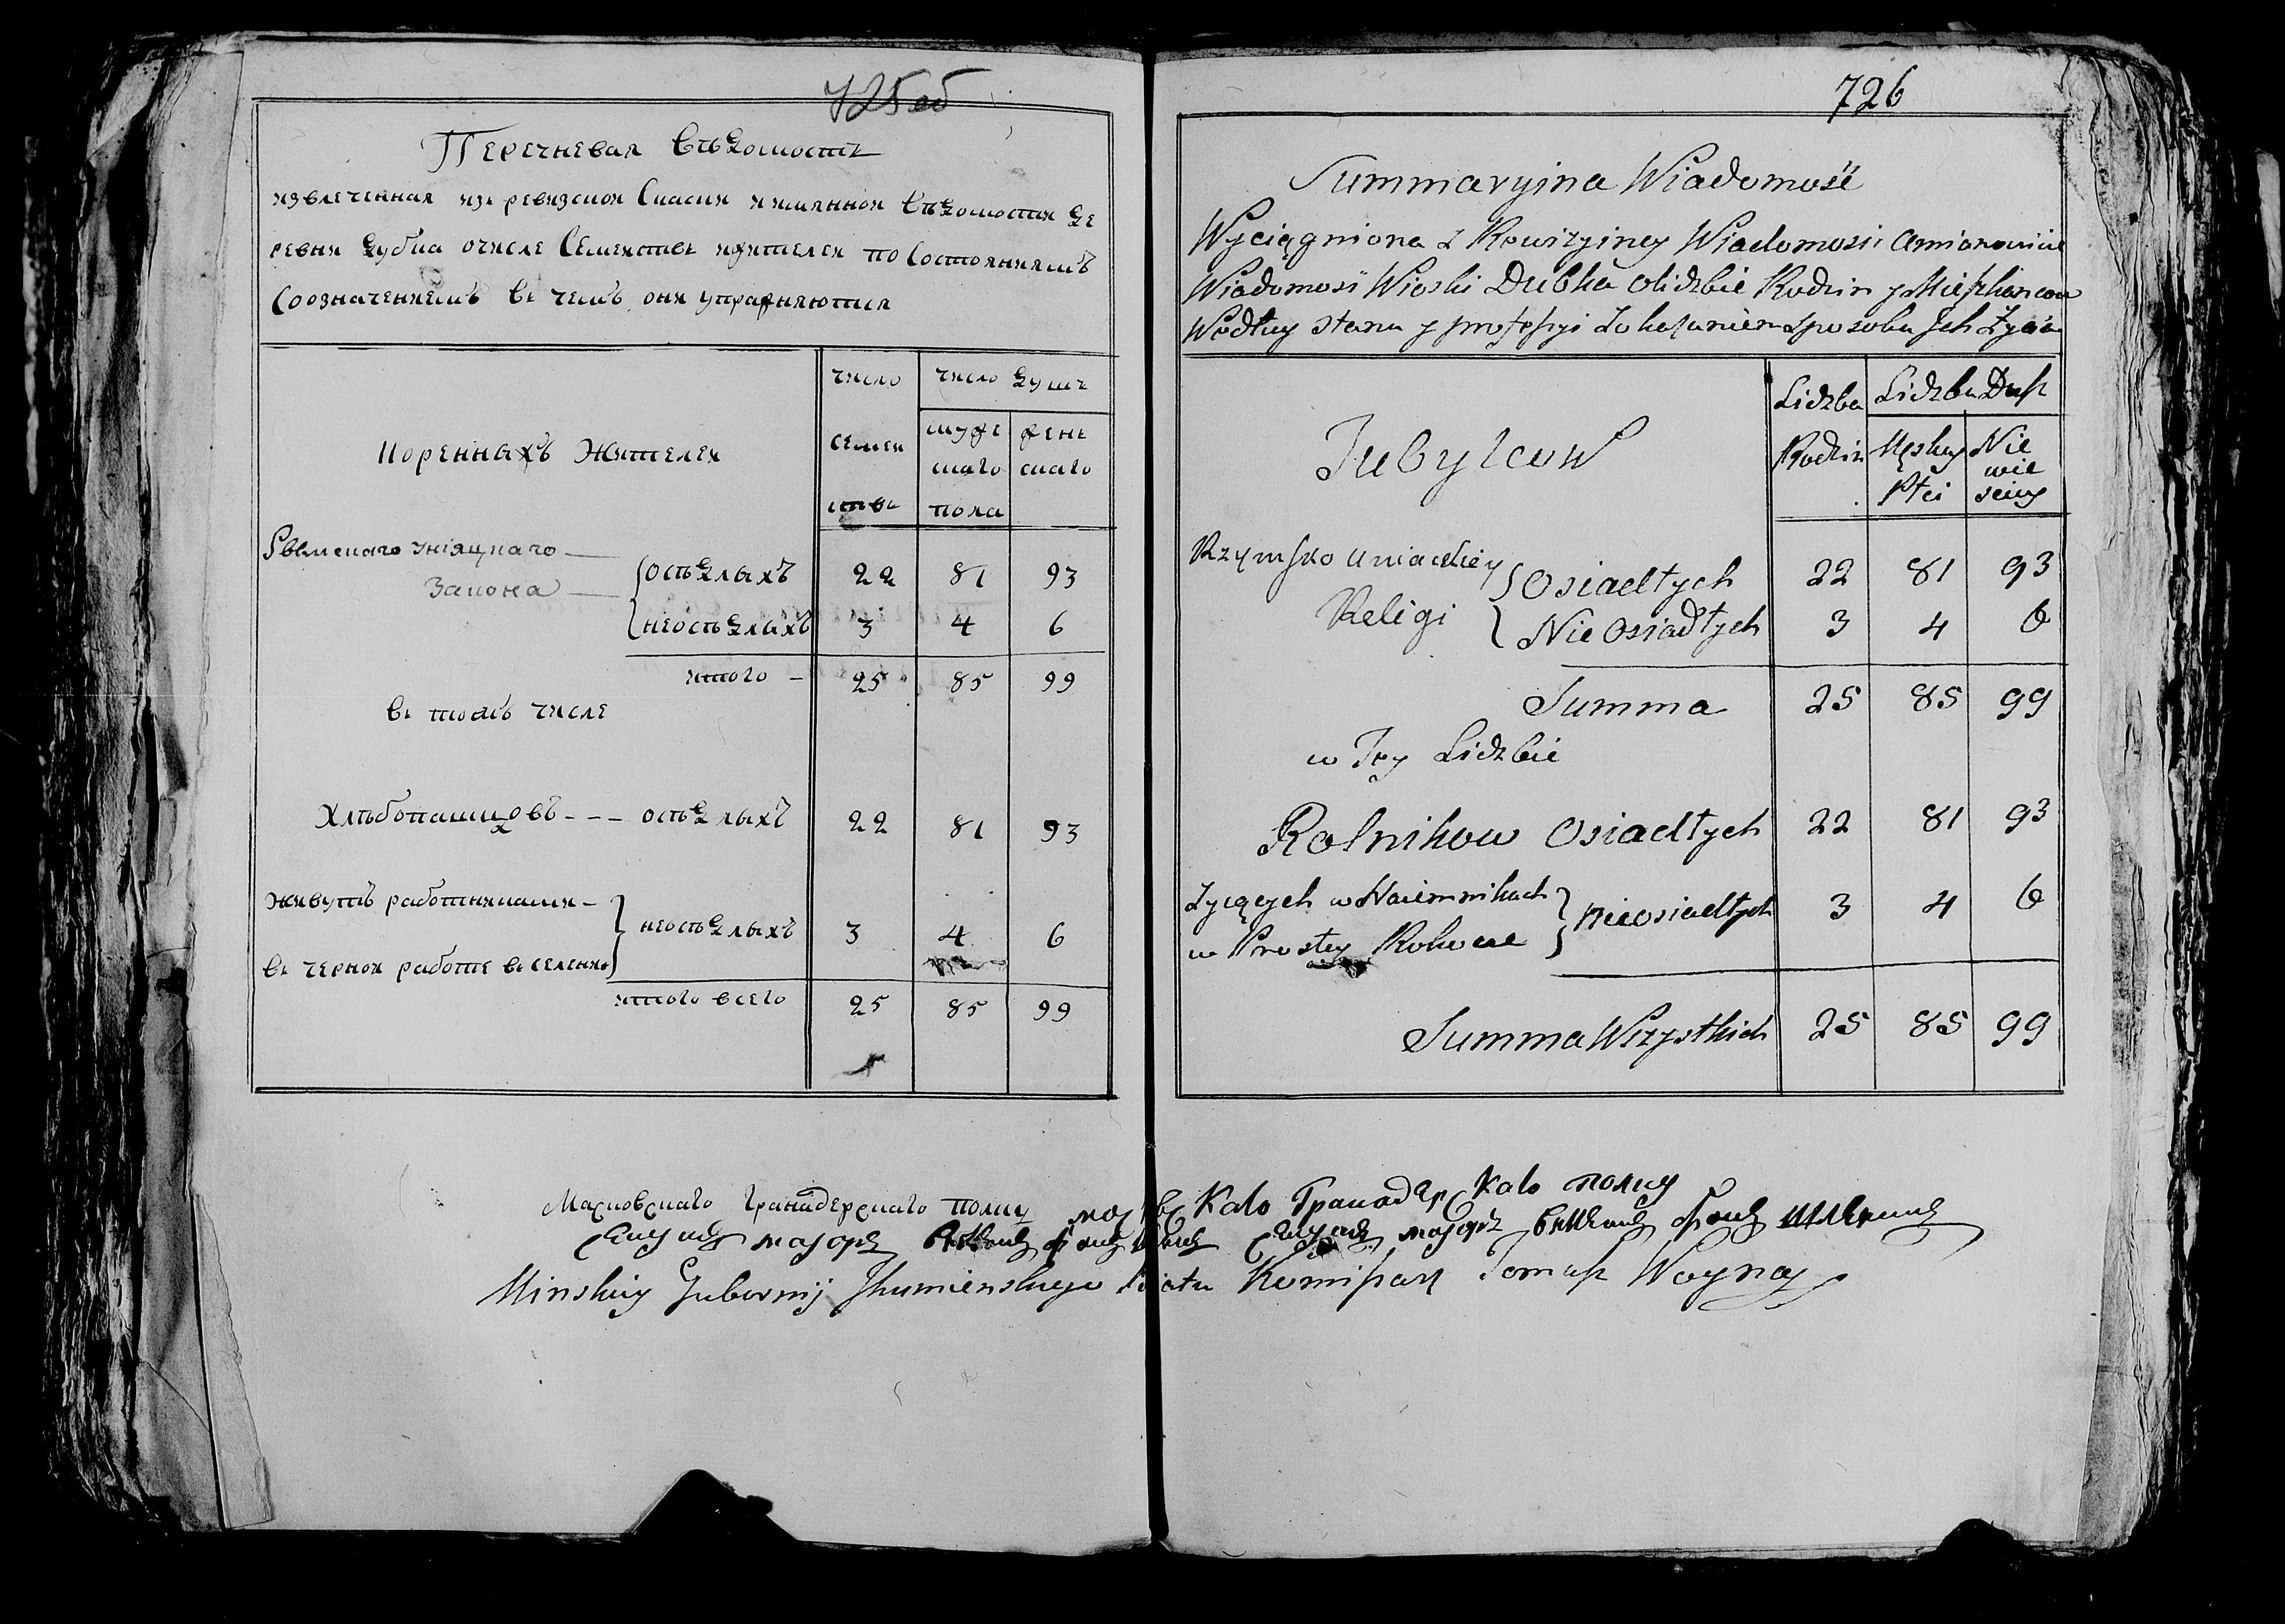 725об
Перечневая вѣдомость
извлеченная изъ ревизской Сказки имянной вѣдомости де
ревни Дубка очисле Семействъ ижителей по Состояниямъ
Сообозначениемъ въ чемъ они упражняются
Коренныхъ Жителей
число
семей
ствъ
число душъ
муже
скаго
пола
жень
скаго
Римскаго Уніяцкаго
Закона
осѣдлыхъ 22 81 93
неосѣдлыхъ 3 4 6
итого 25 85 99
въ томъ числе
Хлѣбопашцовъ - - - осѣдлыхъ 22 81 93
живутъ работниками
въ черной работе въ селении
неосѣдлыхъ 3 4 6
итого всего 25 85 99
726
Summaryina Wiadomość
Wyciągniona z Rewizyiney Wiadomosci
Wiadomosi Wioski Dubka olidzbie Rodzin y Mieszkancow
Wedłuy stanu y professyi zokazaniem sposobu Jch Życia
Tubylcow
Lidzba
Rodzin
Lidzba Dusz
Męskiey
Płci
Nie
wie
sciey
Rzymsko Uniackiey
Religi
Osiadłych 22 81 93
Nie Osiadłych 3 4 6
Summa 25 85 99
w Tey Lidzbie
Rolnikow Osiadłych 22 81 93
Zyiących w Naiemnikach
w Prostey Robocie
nieosiadłych 3 4 6
Summa Wszystkich 25 85 99
Московскаго Гранадерскаго полку
Секундъ маіоръ
Московскаго Гранадерскаго полку
Секундъ маіоръ фонъ
Minskiey Gubernij Jhumienskiego Powiatu Komissarz Tomasz Woyna